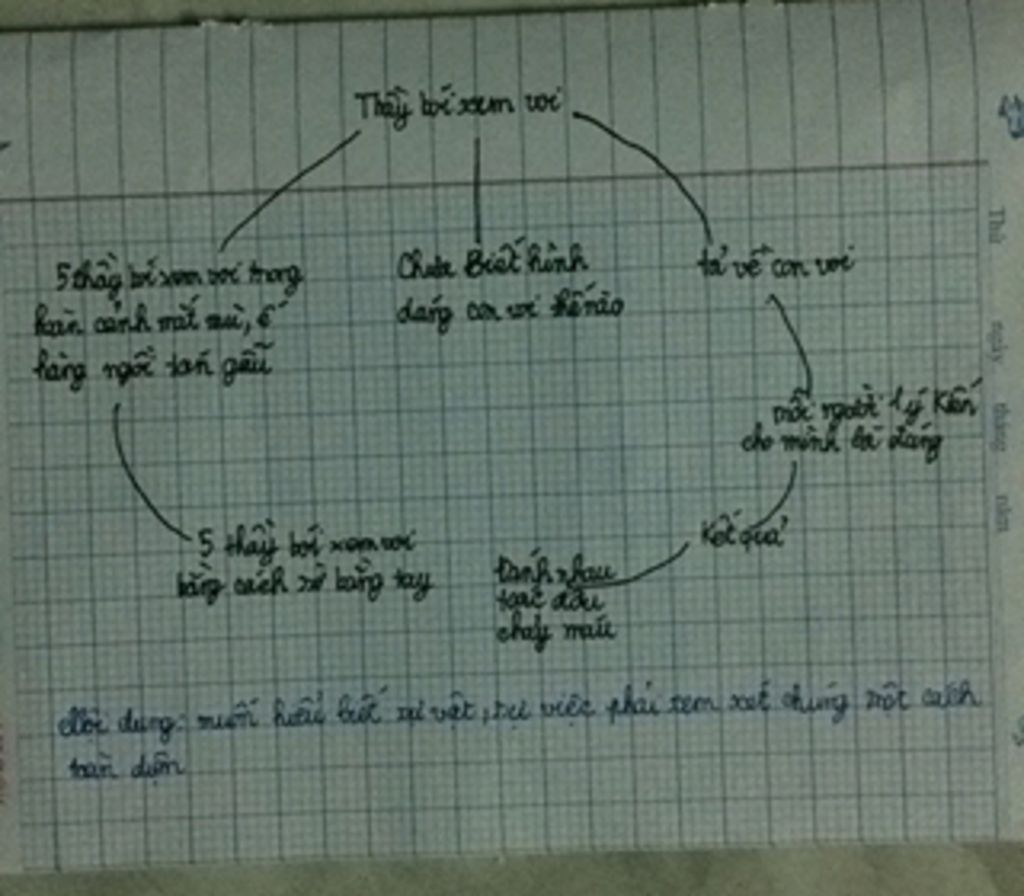 Thầy bói xem voi
5 thầy bói xem voi trong
hoàn cảnh mắt mù, ế
hàng ngồi tán gẫu
Chưa Biết hình
dáng con voi thế nào
tả về con voi
mỗi người 1 ý kiến
cho mình là đúng
5 thầy bói xem voi
bằng cách sờ bằng tay
Kết quả
đánh nhau
toác đầu
chảy máu
Nội dung: muốn hiểu biết sự vật, sự việc phải xem xét chúng một cách
toàn diện
Thứ ngày tháng năm